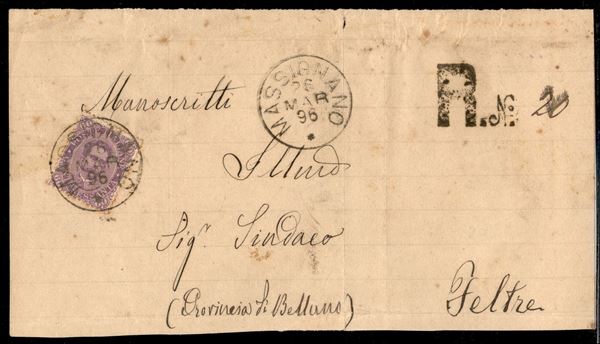 Manoscritti
MASSIGNANO
26
MAR
96
R. N. 20
Illmo
Sigr. Sindaco
(Provincia di Belluno)
Feltre